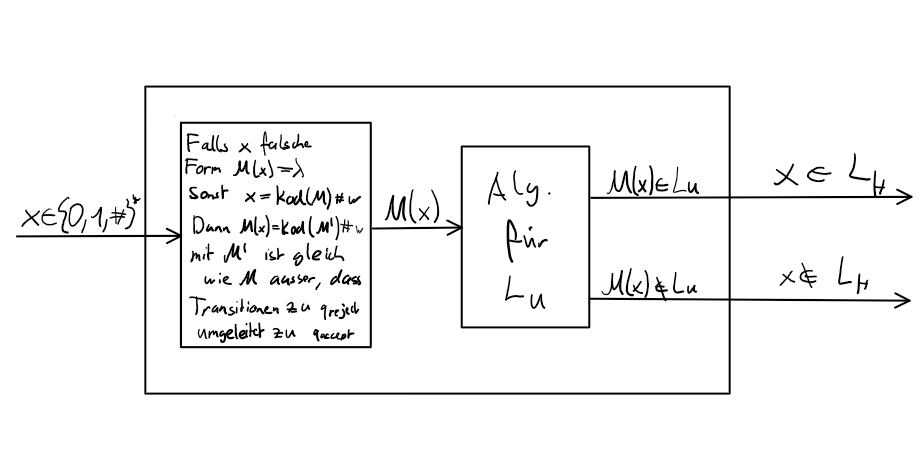 x∈{0,1,#}*
Falls x falsche
Form M(x)=λ
Sonst x=Kod(M)#w
Dann M(x)=Kod(M')#w
mit M' ist gleich
wie M ausser, dass
Transitionen zu qreject
umgeleitet zu qaccept
M(x)
Alg.
für
LU
M(x)∈LU
M(x)∉LU
x∈ LH
x∉ LH